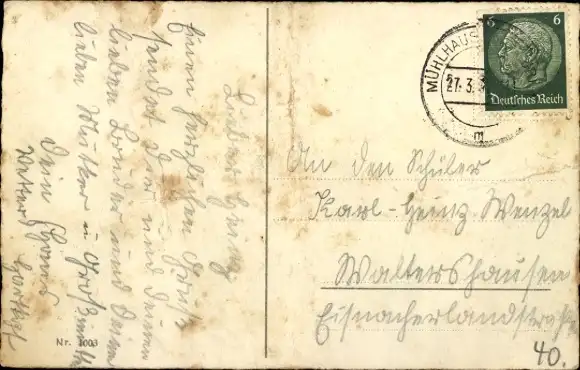 Lieber Heinz
Einen herzlichen Gruß
sendet Dir und Deinen
lieben Bruder und Deiner
lieben Mutter u Großmutter
Dein
Nr. 1003
MÜHLHAUS
27.3.3
m
6 6
Deutsches Reich
An den Schüler
Karl-Heinz Wenzel
Waltershausen
Eisnacherlandstraße
40.